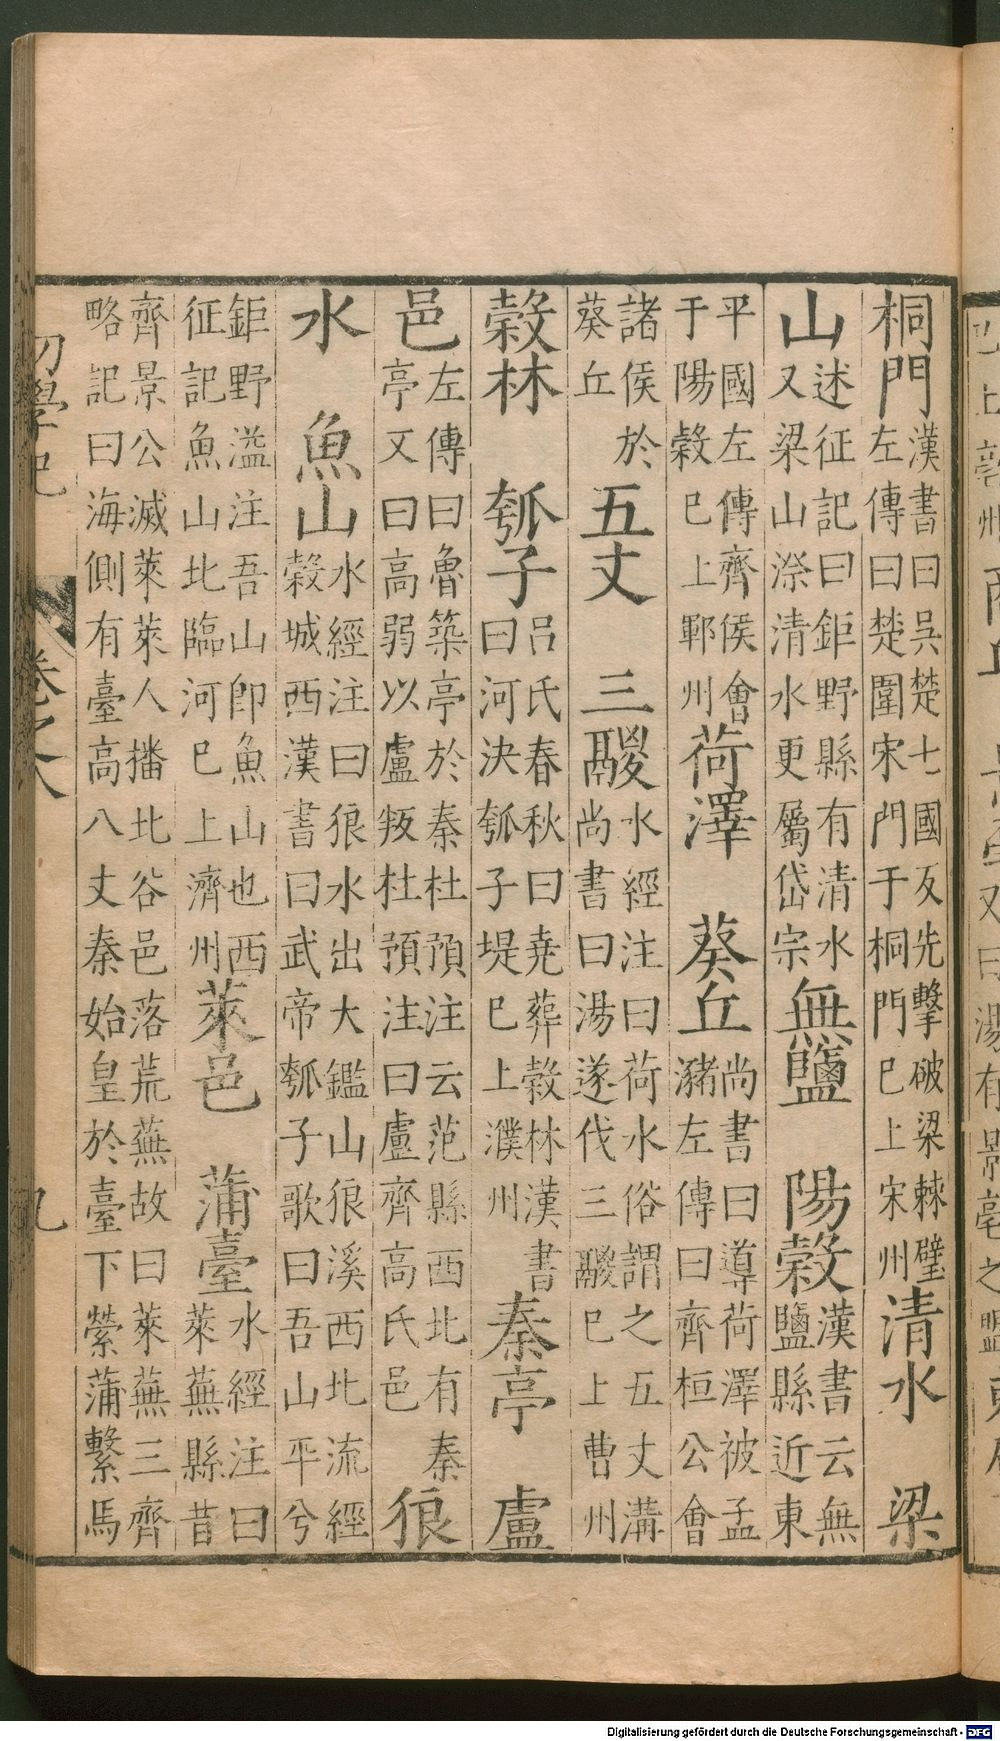 桐門漢書曰吳楚七國反先擊破梁棘壁左傳曰楚圍宋門于桐門巳上宋州清水 梁
山述征記曰鉅野縣有清水又梁山漈清水更屬岱宗無鹽 陽穀漢書云無鹽縣近東
平國左傳齊侯會于陽穀巳上鄆州荷澤 葵丘尚書曰導荷澤被孟瀦左傳曰齊桓公會
諸侯於葵丘五丈 三鬷水經注曰荷水俗謂之五丈溝尚書曰湯遂伐三鬷巳上曹州
穀林 瓠子呂氏春秋曰堯葬穀林漢書曰河決瓠子堤巳上濮州秦亭 盧
邑左傳曰魯築亭於秦杜預注云范縣西北有秦亭又曰高弱以盧叛杜預注曰盧齊高氏邑狼
水 魚山水經注曰狼水出大鑑山狼溪西北流經穀城西漢書曰武帝瓠子歌曰吾山平兮
鉅野溢注吾山卽魚山也西征記魚山北臨河巳上濟州萊邑 蒲臺水經注曰萊蕪縣昔
齊景公滅萊萊人播北谷邑落荒蕪故曰萊蕪三齊略記曰海側有臺高八丈秦始皇於臺下縈蒲繫馬
初學記 卷之八 九
Digitalisierung gefördert durch die Deutsche Forschungsgemeinschaft - DFG